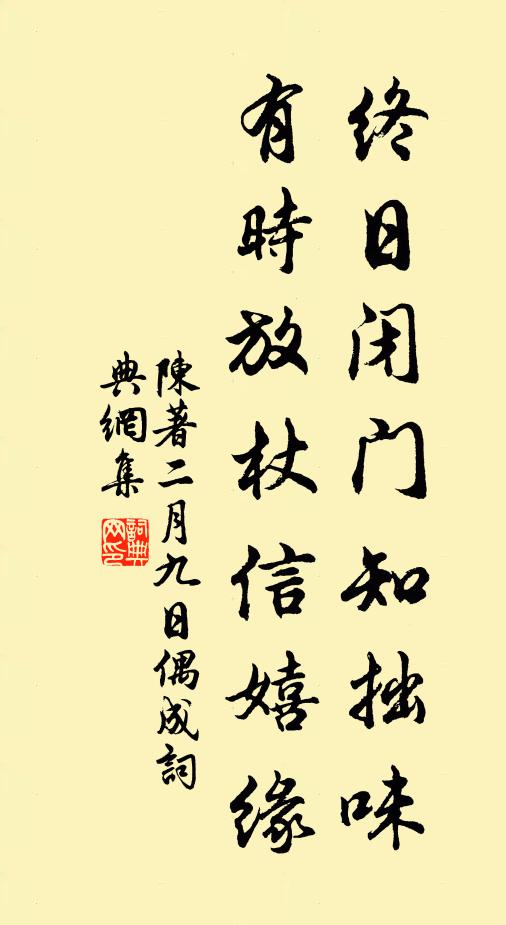 终日闭门知拙味
有時放杖信嬉缘
陳著二月九日偶成詞
典網集
詞典网印